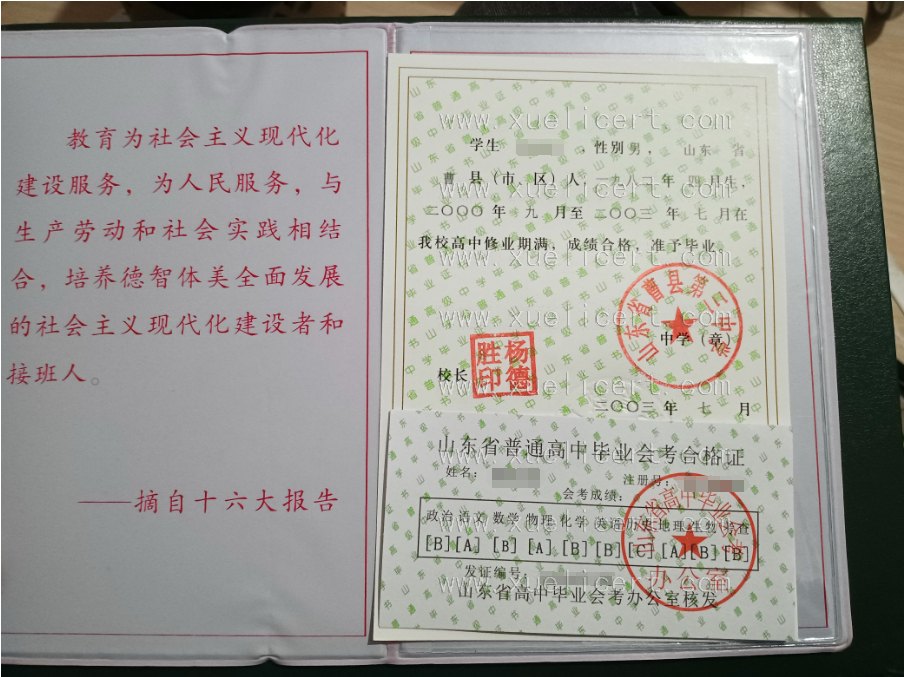 教育为社会主义现代化
建设服务，为人民服务，与
生产劳动和社会实践相结
合，培养德智体美全面发展
的社会主义现代化建设者和
接班人。
——摘自十六大报告
www.xuelicert.com
学生 ，性别 男， 山东 省
曹 县（市、区）人，一九八二年 四 月生，
二〇〇〇 年 九 月至 二〇〇三 年 七 月在
我校高中修业期满，成绩合格，准予毕业。
山东省曹县第三中学
中学（章）
校长
杨德胜印
二〇〇三 年 七 月
山东省普通高中毕业会考合格证
姓名： 注册号：
会考成绩：
政治 语文 数学 物理 化学 英语 历史 地理 生物 考查
[B] [A] [B] [A] [B] [B] [C] [A] [B] [B]
发证编号：
山东省高中毕业会考办公室核发
山东省高中毕业会考
办公室